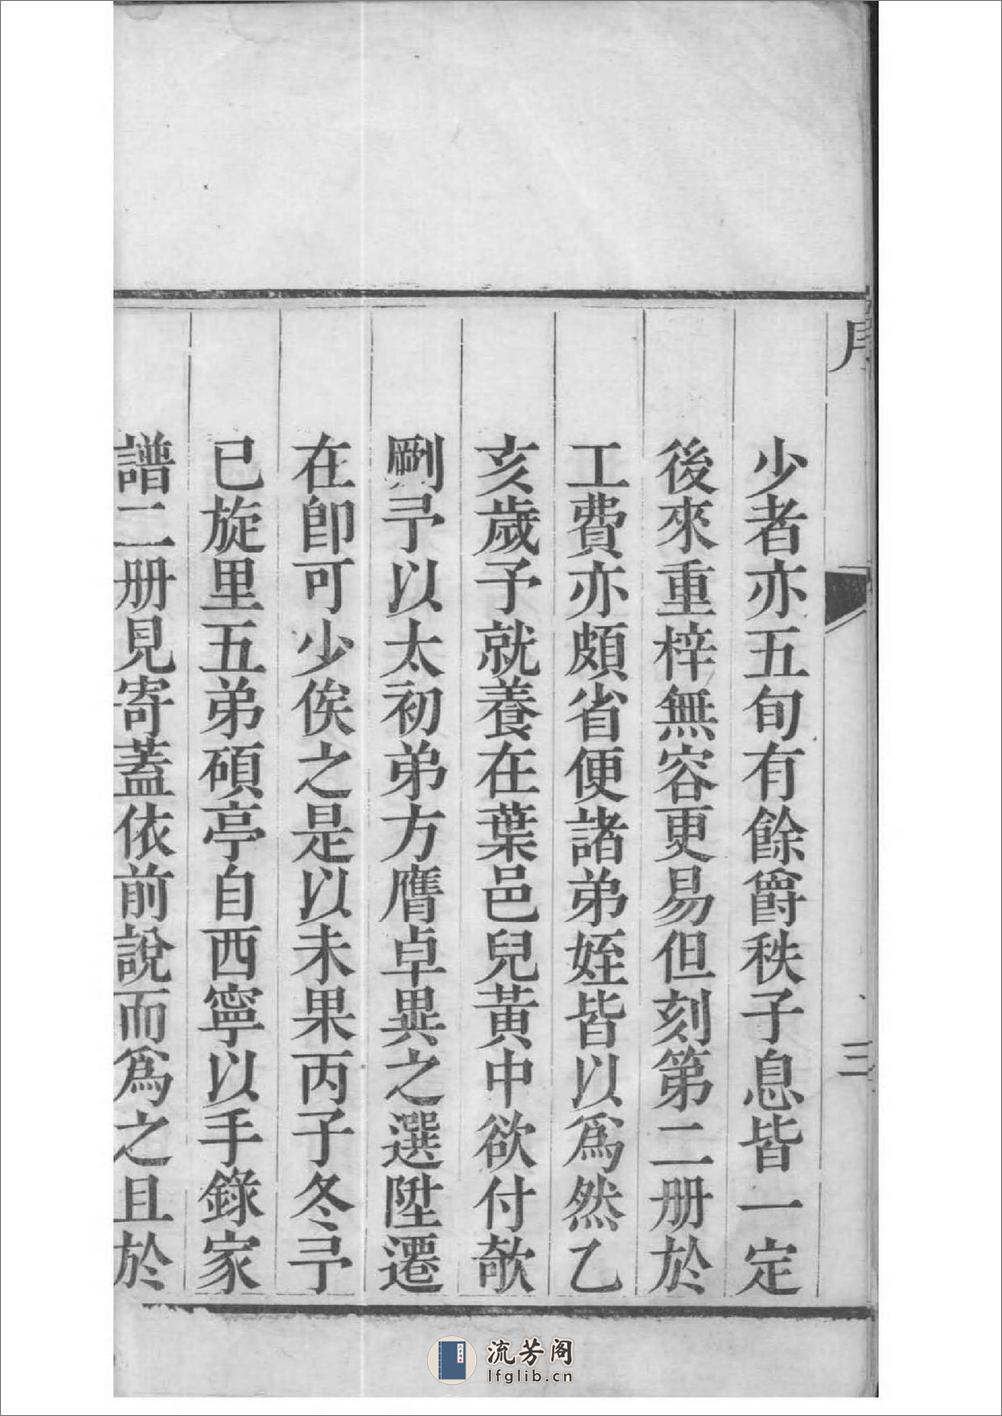 序
三
少者亦五旬有餘爵秩子息皆一定
後來重梓無容更易但刻第二册於
工費亦頗省便諸弟姪皆以爲然乙
亥歲予就養在葉邑兒黃中欲付欹
劂予以太初弟方膺卓異之選陞遷
在卽可少俟之是以未果丙子冬予
已旋里五弟碩亭自西寧以手錄家
譜二册見寄蓋依前說而爲之且於
流芳阁
lfglib.cn